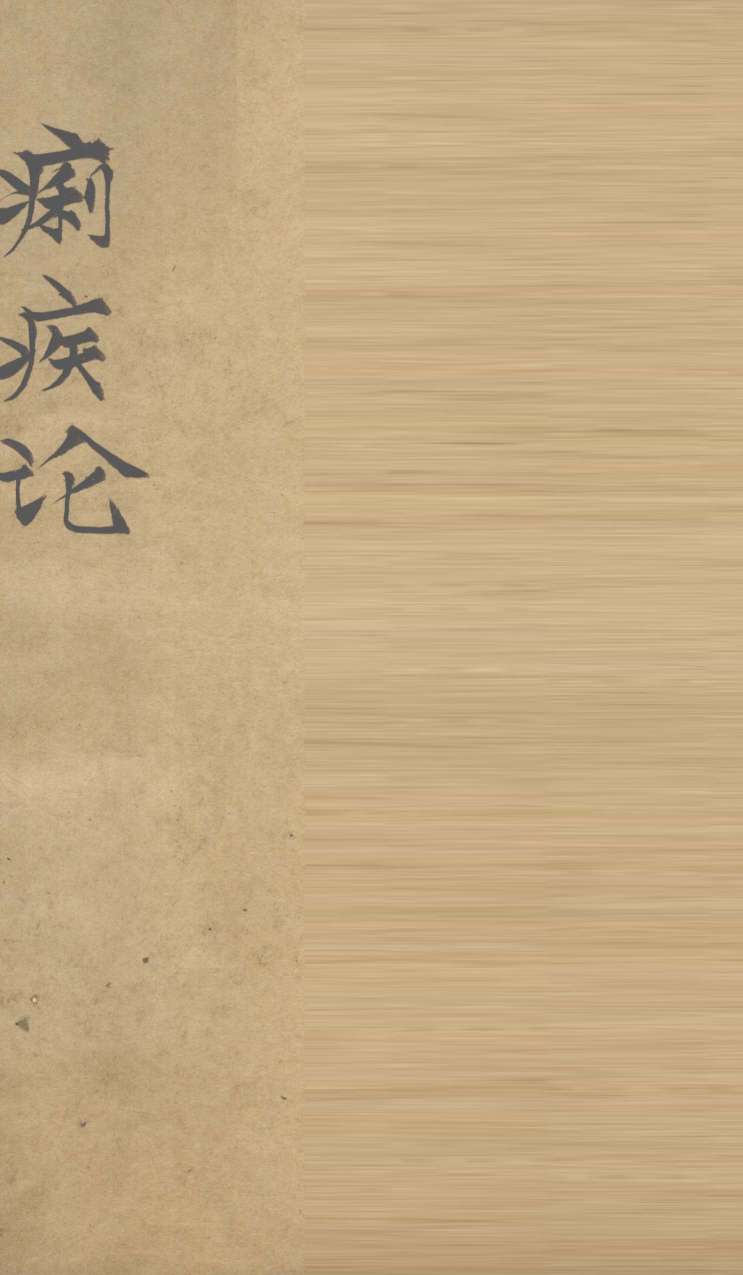 痢疾论